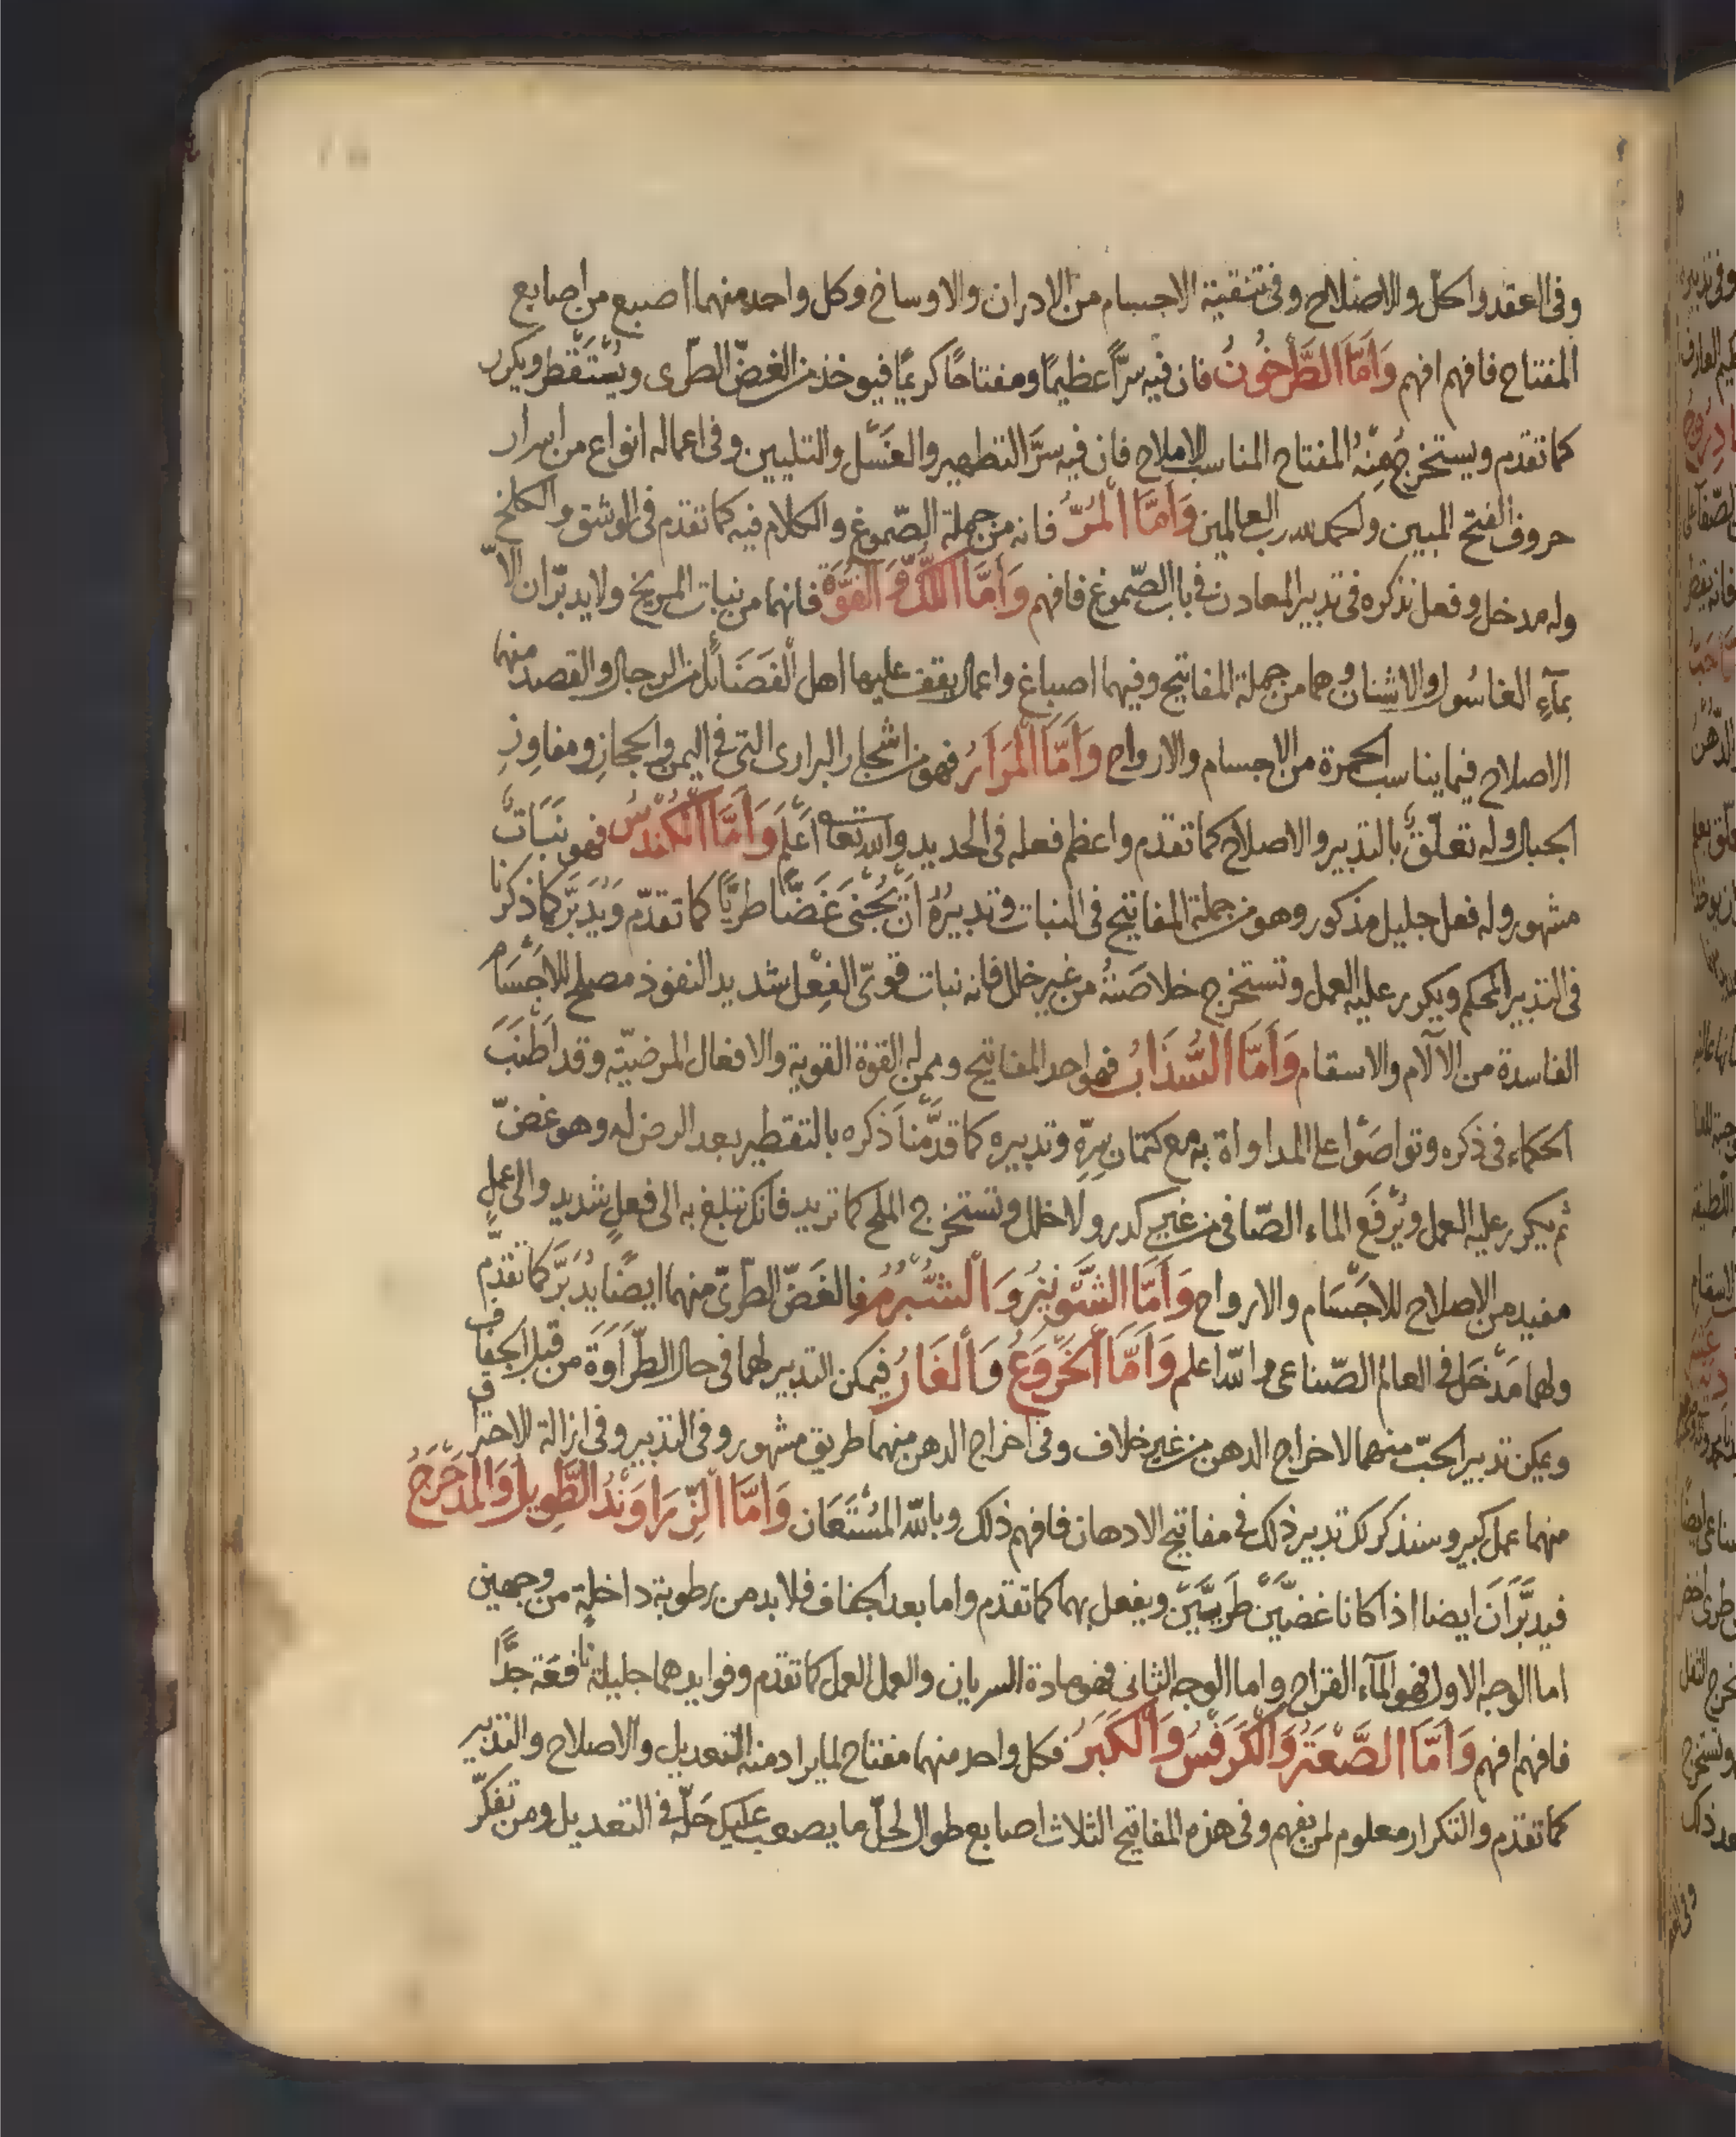 وفى العقد والحلّ والاصلاح وفى تنقية الاجسام من الادران والاوساخ وكل واحد منهما اصبع من اصابع
المفتاح فافهم افهم وَاَمَّا الطَّرْخُونُ فان فيه سرًّا عظيمًا ومفتاحًا كريمًا فيوخذ من الغضّ الطّرى ويُسْتَقْطر ويكرر
كما تقدّم ويستخرج مِنْهُ المفتاح المناسب للاملاح فان فيه سرَّ التطهير والغَسْل والتليين وفى اعماله انواع من اسرار
حروف الفتح المبين والحمد لله رب العالمين وَاَمَّا الْمُرّ فانه من جملة الصّموغ والكلام فيه كما تقدم فى الوشق والكلخ
وله مدخل وفعل نذكره فى تدبير المعادن فى باب الصّموغ فافهم وَاَمَّا اللُّكّ وَ الفُوَّةُ فانهما من نبات المريخ ولا يدبّران الاّ
بمآءِ الغاسُول والاشنان وهما من جملة المفاتيح وفيهما اصباغ واعمال يقف عليها اهل الْفَضَائل من الرجال والقصد منهما
الاصلاح فيما يناسب الحمرة من الاجسام والارواح وَاَمَّا الْمَرَائرُ فهو من اشجار البرارى التى فى اليمن والحجاز ومفاوِزِ
الجبال وله تعلّقٌ بالتدبير والاصلاح كما تقدم واعظم فعله فى الحديد والله تعا اَعْلَم وَاَمَّا الْكُنْدُسُ فهو نَبَاتٌ
مشهور وله فعل جليل مذكور وهو من جملة المفاتيح فى النبات وتدبيرُهُ اَنْ يُجْنَى غَضًّا طريًّا كما تقدّم وَيُدَبَّر كما ذكرنا
فى التدبير المحكم ويكرر عليه العمل وتستخرج خلاصَتهُ من غير خلل فانه نبات قوىّ الفِعْل شديد النفوذ مصلح للاَجْسَام
الفاسدة من الآلام والاسقام وَاَمَّا السَّذَابُ فهو احد المفاتيح وممن له القوّة القوية والافعال المرضيّة وقد اَطْنَبَ
الحكماء فى ذكره وتواصَوْا على المداواة به مع كتمان سِرّهِ وتدبيره كما قدَّمْنا ذكره بالتقطير بعد الرض له وهو غضّ
ثم يكرر عليه العمل ويُرْفَع الماء الصّافى من غير كدر ولا خلل وتستخرج الملح كما تريد فانك تبلغ به الى فعلٍ شديد والى عملٍ
مفيد من الاصلاح للاجْسَام والارواح وَاَمَّا الشُّونيزُ وَالْشُّبْرُمُ فالغَضّ الطّرىّ منهما ايضًا يُدَبَّر كما تقدّم
ولهما مَدْخَل فى العالم الصّناعى والله اعلم وَاَمَّا الْخَرْوَعُ وَالْغَارُ فيمكن التدبير لهما فى حال الطّرَاوَة من قبل الجفاف
ويمكن تدبير الحبّ منهما لاخراج الدهن من غير خلاف وفى اخراج الدهن منهما طريق مشهور وفى التدبير وفى ازالة الاحتراق
منهما عمل كبير وسنذكر لك تدبير ذلك فى مفاتيح الادهان فافهم ذلك وبالله المُسْتَعَان وَاَمَّا الزّرَاوَنْدُ الطَّوِيلُ وَالْمُدَحْرَجُ
فيدبَّرَانَ ايضا اذا كانا غضيَّيْن طَرِيَّيْن ويفعل بهما كما تقدّم واما بعد الجفاف فلا بد من رطوبة داخلةٍ من وجهين
اما الوجه الاول فهو المآء القراح واما الوجه الثانى فهو مادة السريان والعمل العمل كما تقدّم وفوايدهما جليلة نافعَة جدًّا
فافهم افهم وَاَمَّا الصَّعْتَرُ وَالْكَرَفْسُ وَالْكَبَرُ فكل واحد منهما مفتاح لما يراد منه التعديل والاصلاح والتدبير
كما تقدّم والتكرار معلوم لمن يفهم وفى هذه المفاتيح الثلاث اصابع طوال لحلّ ما يصعب عليك حَلّه فى التعديل ومن تفكّر